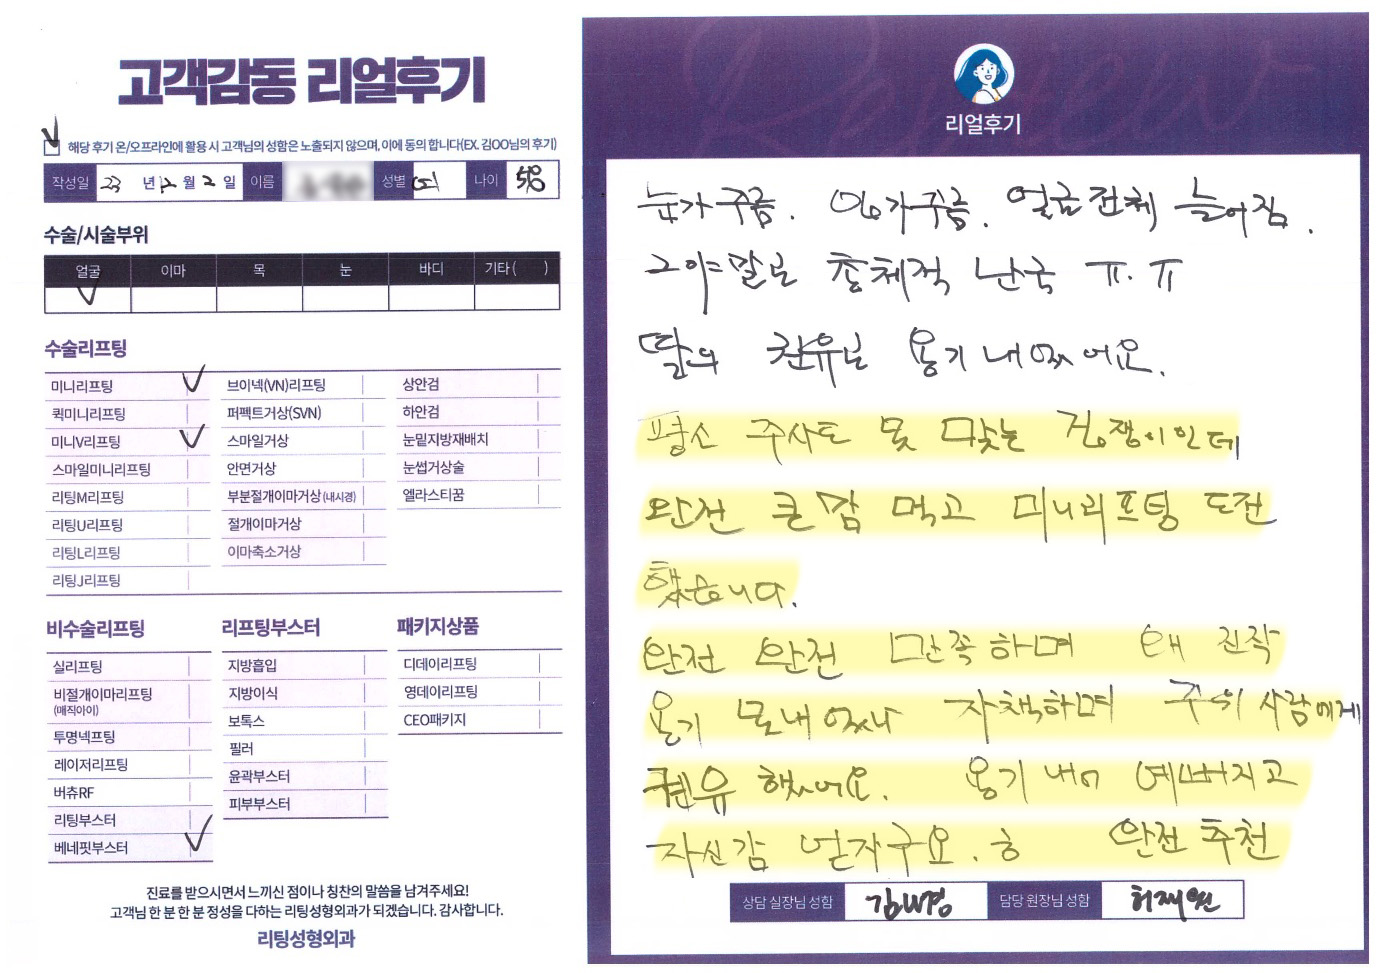 고객감동 리얼후기
해당 후기 온/오프라인에 활용 시 고객님의 성함은 노출되지 않으며, 이에 동의 합니다(EX. 김OO님의 후기)
작성일 23 년 12 월 2 일 이름 성별 여 나이 58
수술/시술부위
얼굴 이마 목 눈 바디 기타( )
수술리프팅
미니리프팅 브이넥(VN)리프팅 상안검
퀵미니리프팅 퍼펙트거상(SVN) 하안검
미니V리프팅 스마일거상 눈밑지방재배치
스마일미니리프팅 안면거상 눈썹거상술
리팅M리프팅 부분절개이마거상(내시경) 엘라스티꿈
리팅U리프팅 절개이마거상
리팅L리프팅 이마축소거상
리팅J리프팅
비수술리프팅 리프팅부스터 패키지상품
실리프팅 지방흡입 디데이리프팅
비절개이마리프팅 지방이식 영데이리프팅
(매직아이) 보톡스 CEO패키지
투명넥프팅 필러
레이저리프팅 윤곽부스터
버츄RF 피부부스터
리팅부스터
베네핏부스터
진료를 받으시면서 느끼신 점이나 칭찬의 말씀을 남겨주세요!
고객님 한 분 한 분 정성을 다하는 리팅성형외과가 되겠습니다. 감사합니다.
리팅성형외과
Review
리얼후기
눈가주름. 입가주름. 얼굴전체 늘어짐.
그야말로 총체적 난국 ㅠ.ㅠ
딸의 권유로 용기 내었어요.
평소 주사도 못 맞는 겁쟁이인데
완전 큰맘 먹고 미니리프팅 도전
했습니다.
완전 완전 만족하며 왜 진작
용기 못내었나 자책하며 주위 사람에게
권유 했어요. 용기 내어 예뻐지고
자신감 얻자구요. ㅎ 완전 추천
상담 실장님 성함 담당 원장님 성함 허재원